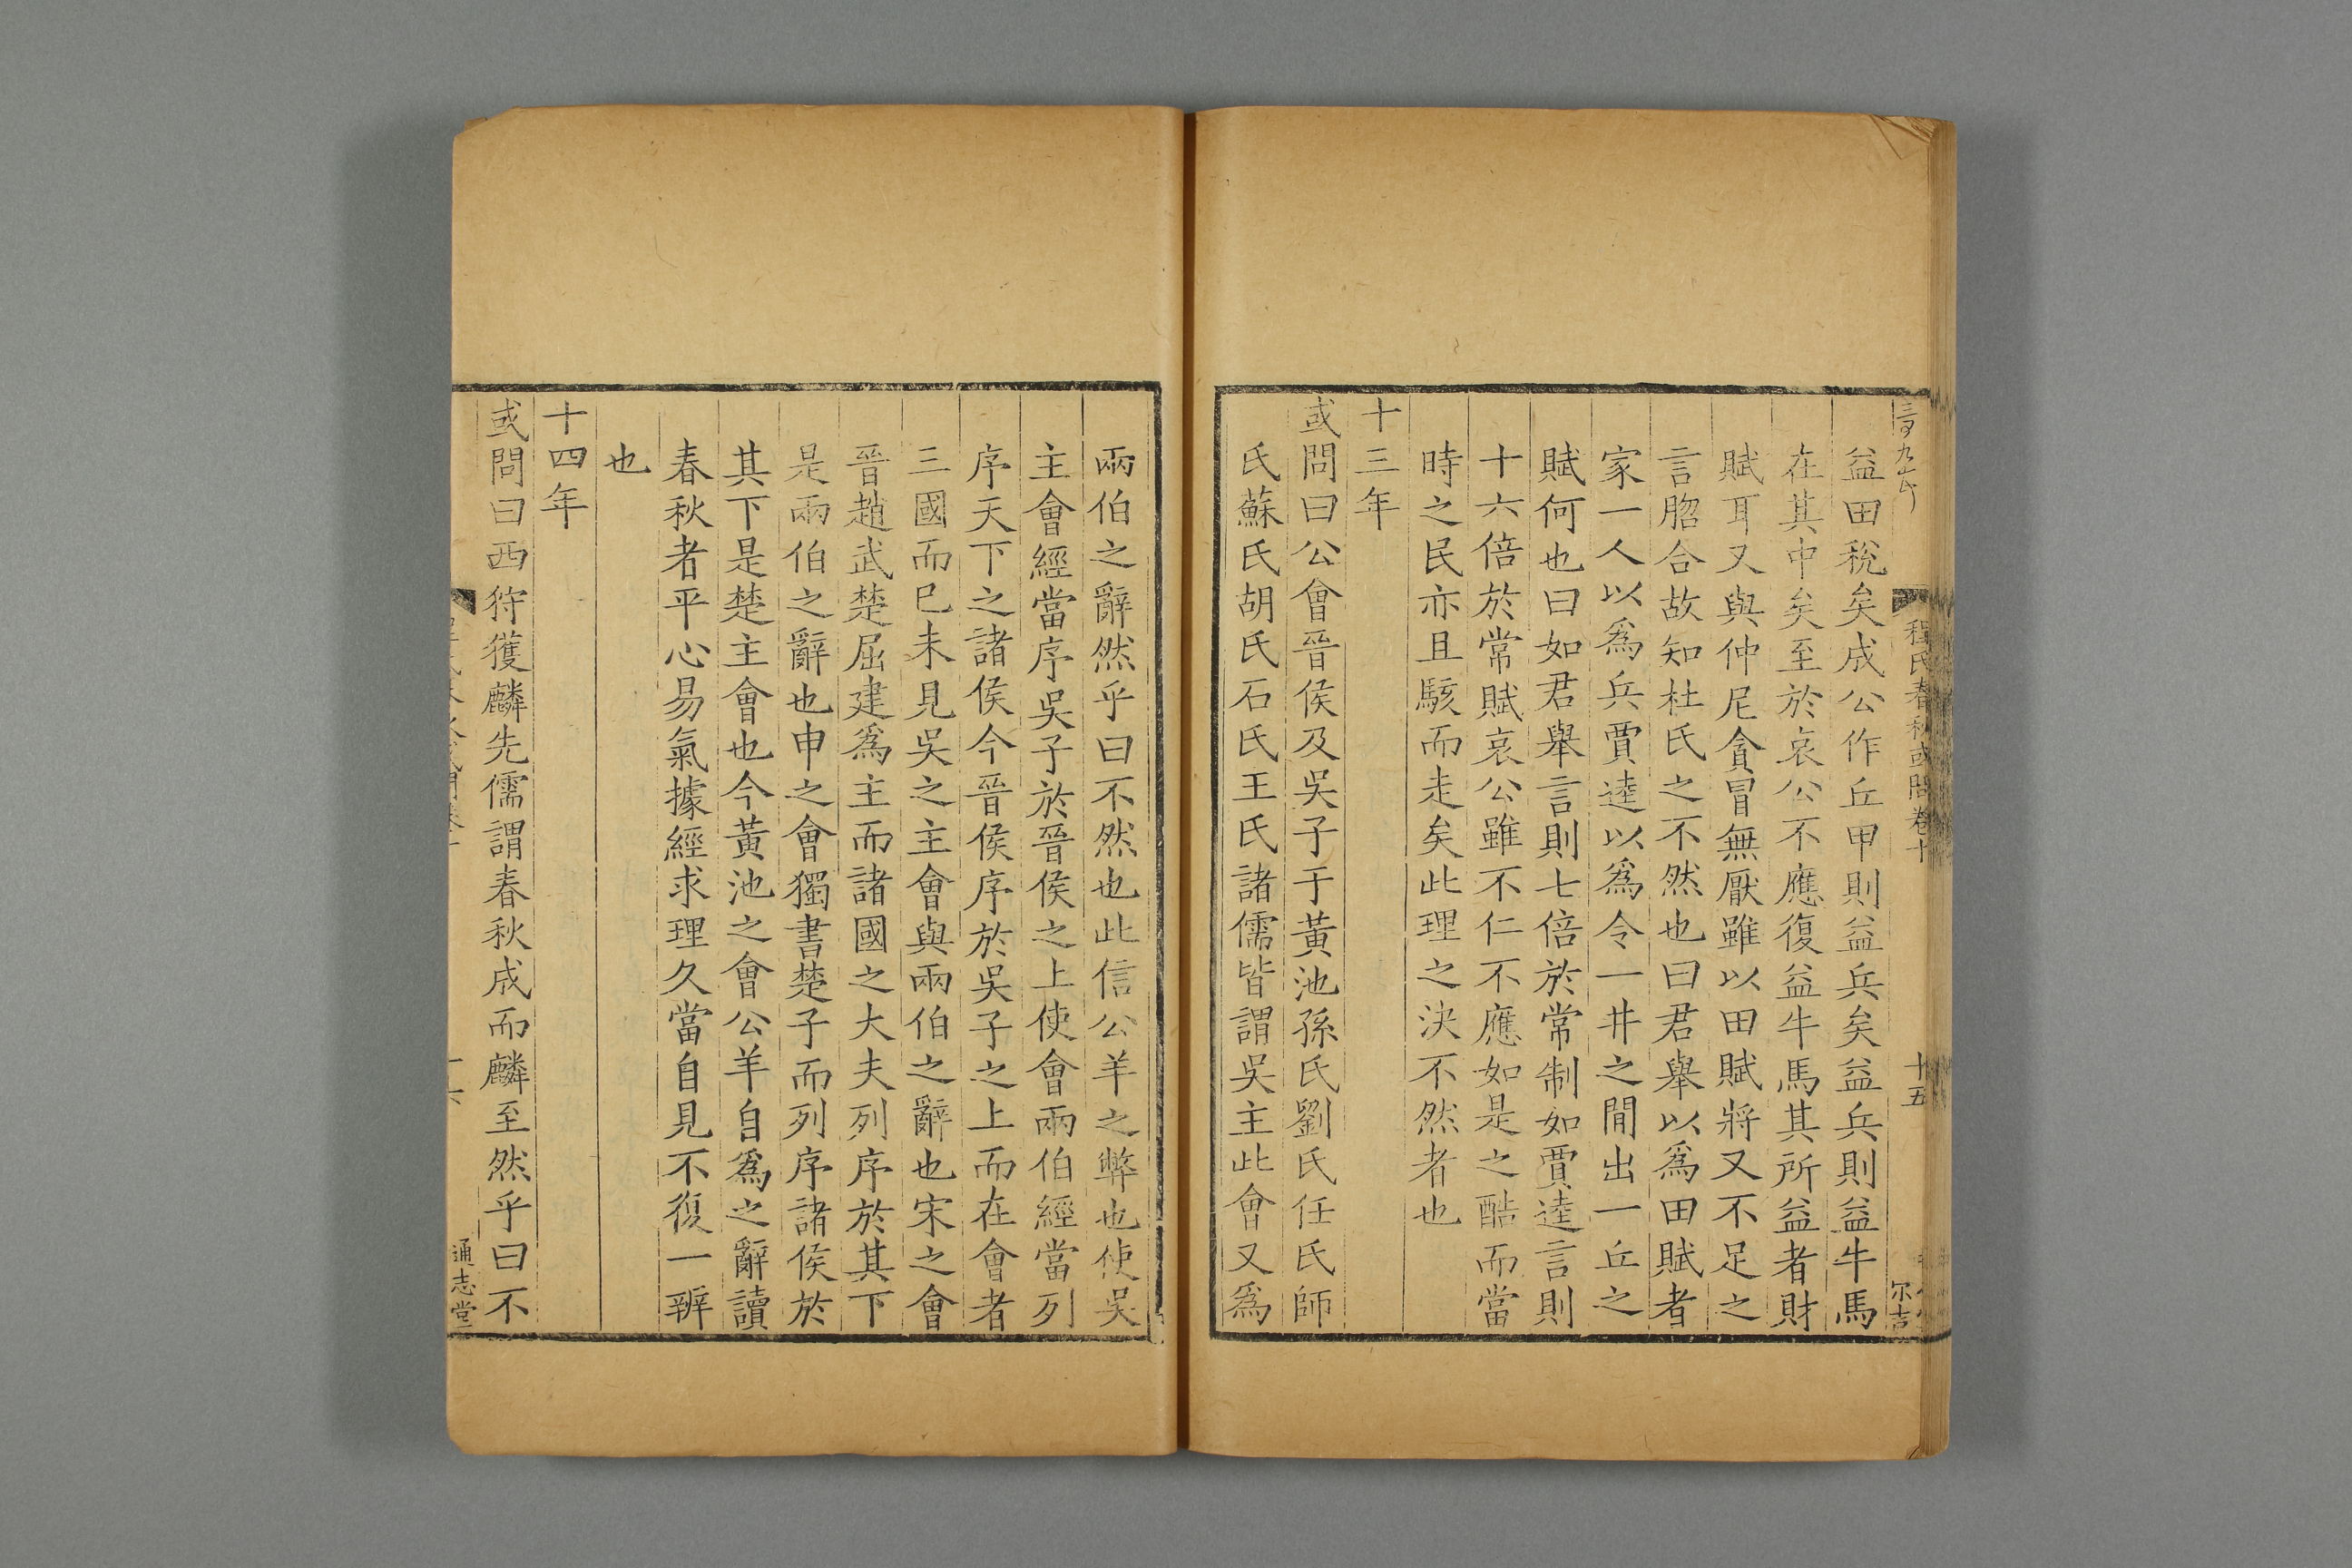 程氏春秋或問卷十
十五
益田稅矣成公作丘甲則益兵矣益兵則益牛馬
在其中矣至於哀公不應復益牛馬其所益者財
賦耳又與仲尼貪冒無厭雖以田賦將又不足之
言脗合故知杜氏之不然也曰君舉以爲田賦者
家一人以爲兵賈逵以爲令一井之間出一丘之
賦何也曰如君舉言則七倍於常制如賈逵言則
十六倍於常賦哀公雖不仁不應如是之酷而當
時之民亦且駭而走矣此理之決不然者也
十三年
或問曰公會晉侯及吳子于黃池孫氏劉氏任氏師
氏蘇氏胡氏石氏王氏諸儒皆謂吳主此會又爲
兩伯之辭然乎曰不然也此信公羊之弊也使吳
主會經當序吳子於晉侯之上使會兩伯經當列
序天下之諸侯今晉侯序於吳子之上而在會者
三國而已未見吳之主會與兩伯之辭也宋之會
晉趙武楚屈建爲主而諸國之大夫列序於其下
是兩伯之辭也申之會獨書楚子而列序諸侯於
其下是楚主會也今黃池之會公羊自爲之辭讀
春秋者平心易氣據經求理久當自見不復一辨
也
十四年
或問曰西狩獲麟先儒謂春秋成而麟至然乎曰不
通志堂